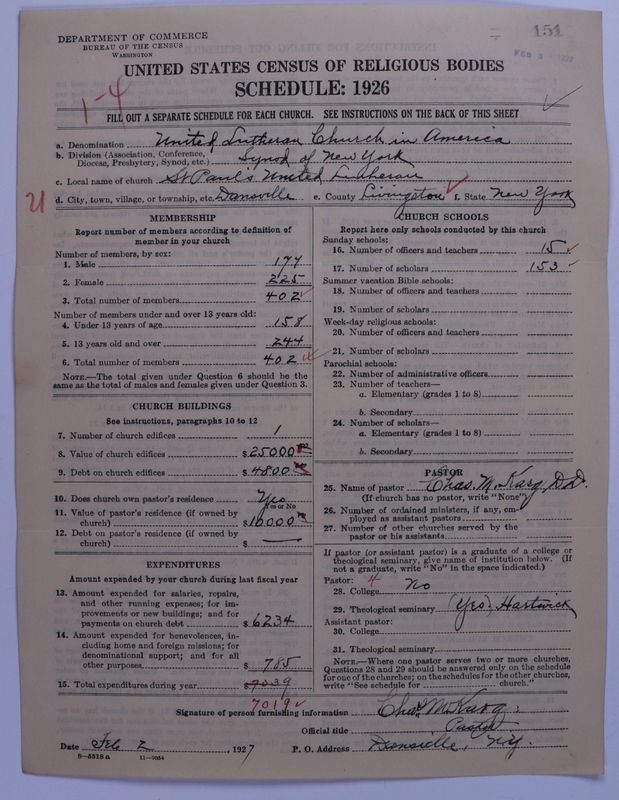 DEPARTMENT OF COMMERCE
BUREAU OF THE CENSUS
WASHINGTON
151
UNITED STATES CENSUS OF RELIGIOUS BODIES
SCHEDULE: 1926
1-4
FILL OUT A SEPARATE SCHEDULE FOR EACH CHURCH. SEE INSTRUCTIONS ON THE BACK OF THIS SHEET
a. Denomination United Lutheran Church in America
b. Division (Association, Conference, Diocese, Presbytery, Synod, etc.) Synod of New York
c. Local name of church St Paul's United Lutheran
d. City, town, village, or township, etc. Dansville e. County Livingston f. State New York
21
MEMBERSHIP
Report number of members according to definition of
member in your church
Number of members, by sex:
1. Male 177
2. Female 225
3. Total number of members 402
Number of members under and over 13 years old:
4. Under 13 years of age 158
5. 13 years old and over 244
6. Total number of members 402
NOTE.—The total given under Question 6 should be the
same as the total of males and females given under Question 3.
CHURCH BUILDINGS
See instructions, paragraphs 10 to 12
7. Number of church edifices 1
8. Value of church edifices $25000
9. Debt on church edifices $4800
10. Does church own pastor's residence Yes
Yes or No
11. Value of pastor's residence (if owned by
church) $10000
12. Debt on pastor's residence (if owned by
church) $ —
EXPENDITURES
Amount expended by your church during last fiscal year
13. Amount expended for salaries, repairs,
and other running expenses; for im-
provements or new buildings; and for
payments on church debt $6234
14. Amount expended for benevolences, in-
cluding home and foreign missions; for
denominational support; and for all
other purposes $785
15. Total expenditures during year $7039
7019
CHURCH SCHOOLS
Report here only schools conducted by this church
Sunday schools:
16. Number of officers and teachers 15
17. Number of scholars 153
Summer vacation Bible schools:
18. Number of officers and teachers
19. Number of scholars
Week-day religious schools:
20. Number of officers and teachers
21. Number of scholars
Parochial schools:
22. Number of administrative officers
23. Number of teachers—
a. Elementary (grades 1 to 8)
b. Secondary
24. Number of scholars—
a. Elementary (grades 1 to 8)
b. Secondary
PASTOR
25. Name of pastor Chas. M. Karg, D.D.
(If church has no pastor, write "None")
26. Number of ordained ministers, if any, em-
ployed as assistant pastors
27. Number of other churches served by the
pastor or his assistants
If pastor (or assistant pastor) is a graduate of a college or
theological seminary, give name of institution below. (If
not a graduate, write "No" in the space indicated.)
Pastor: 4
28. College No
29. Theological seminary (Yes) Hartwick
Assistant pastor:
30. College
31. Theological seminary
NOTE.—Where one pastor serves two or more churches,
Questions 28 and 29 should be answered only on the schedule
for one of the churches; on the schedules for the other churches,
write "See schedule for church."
Signature of person furnishing information Chas. M. Karg
Official title Pastor
Date Feb 2, 1927 P. O. Address Dansville, N.Y.
8—5518a 11—9054